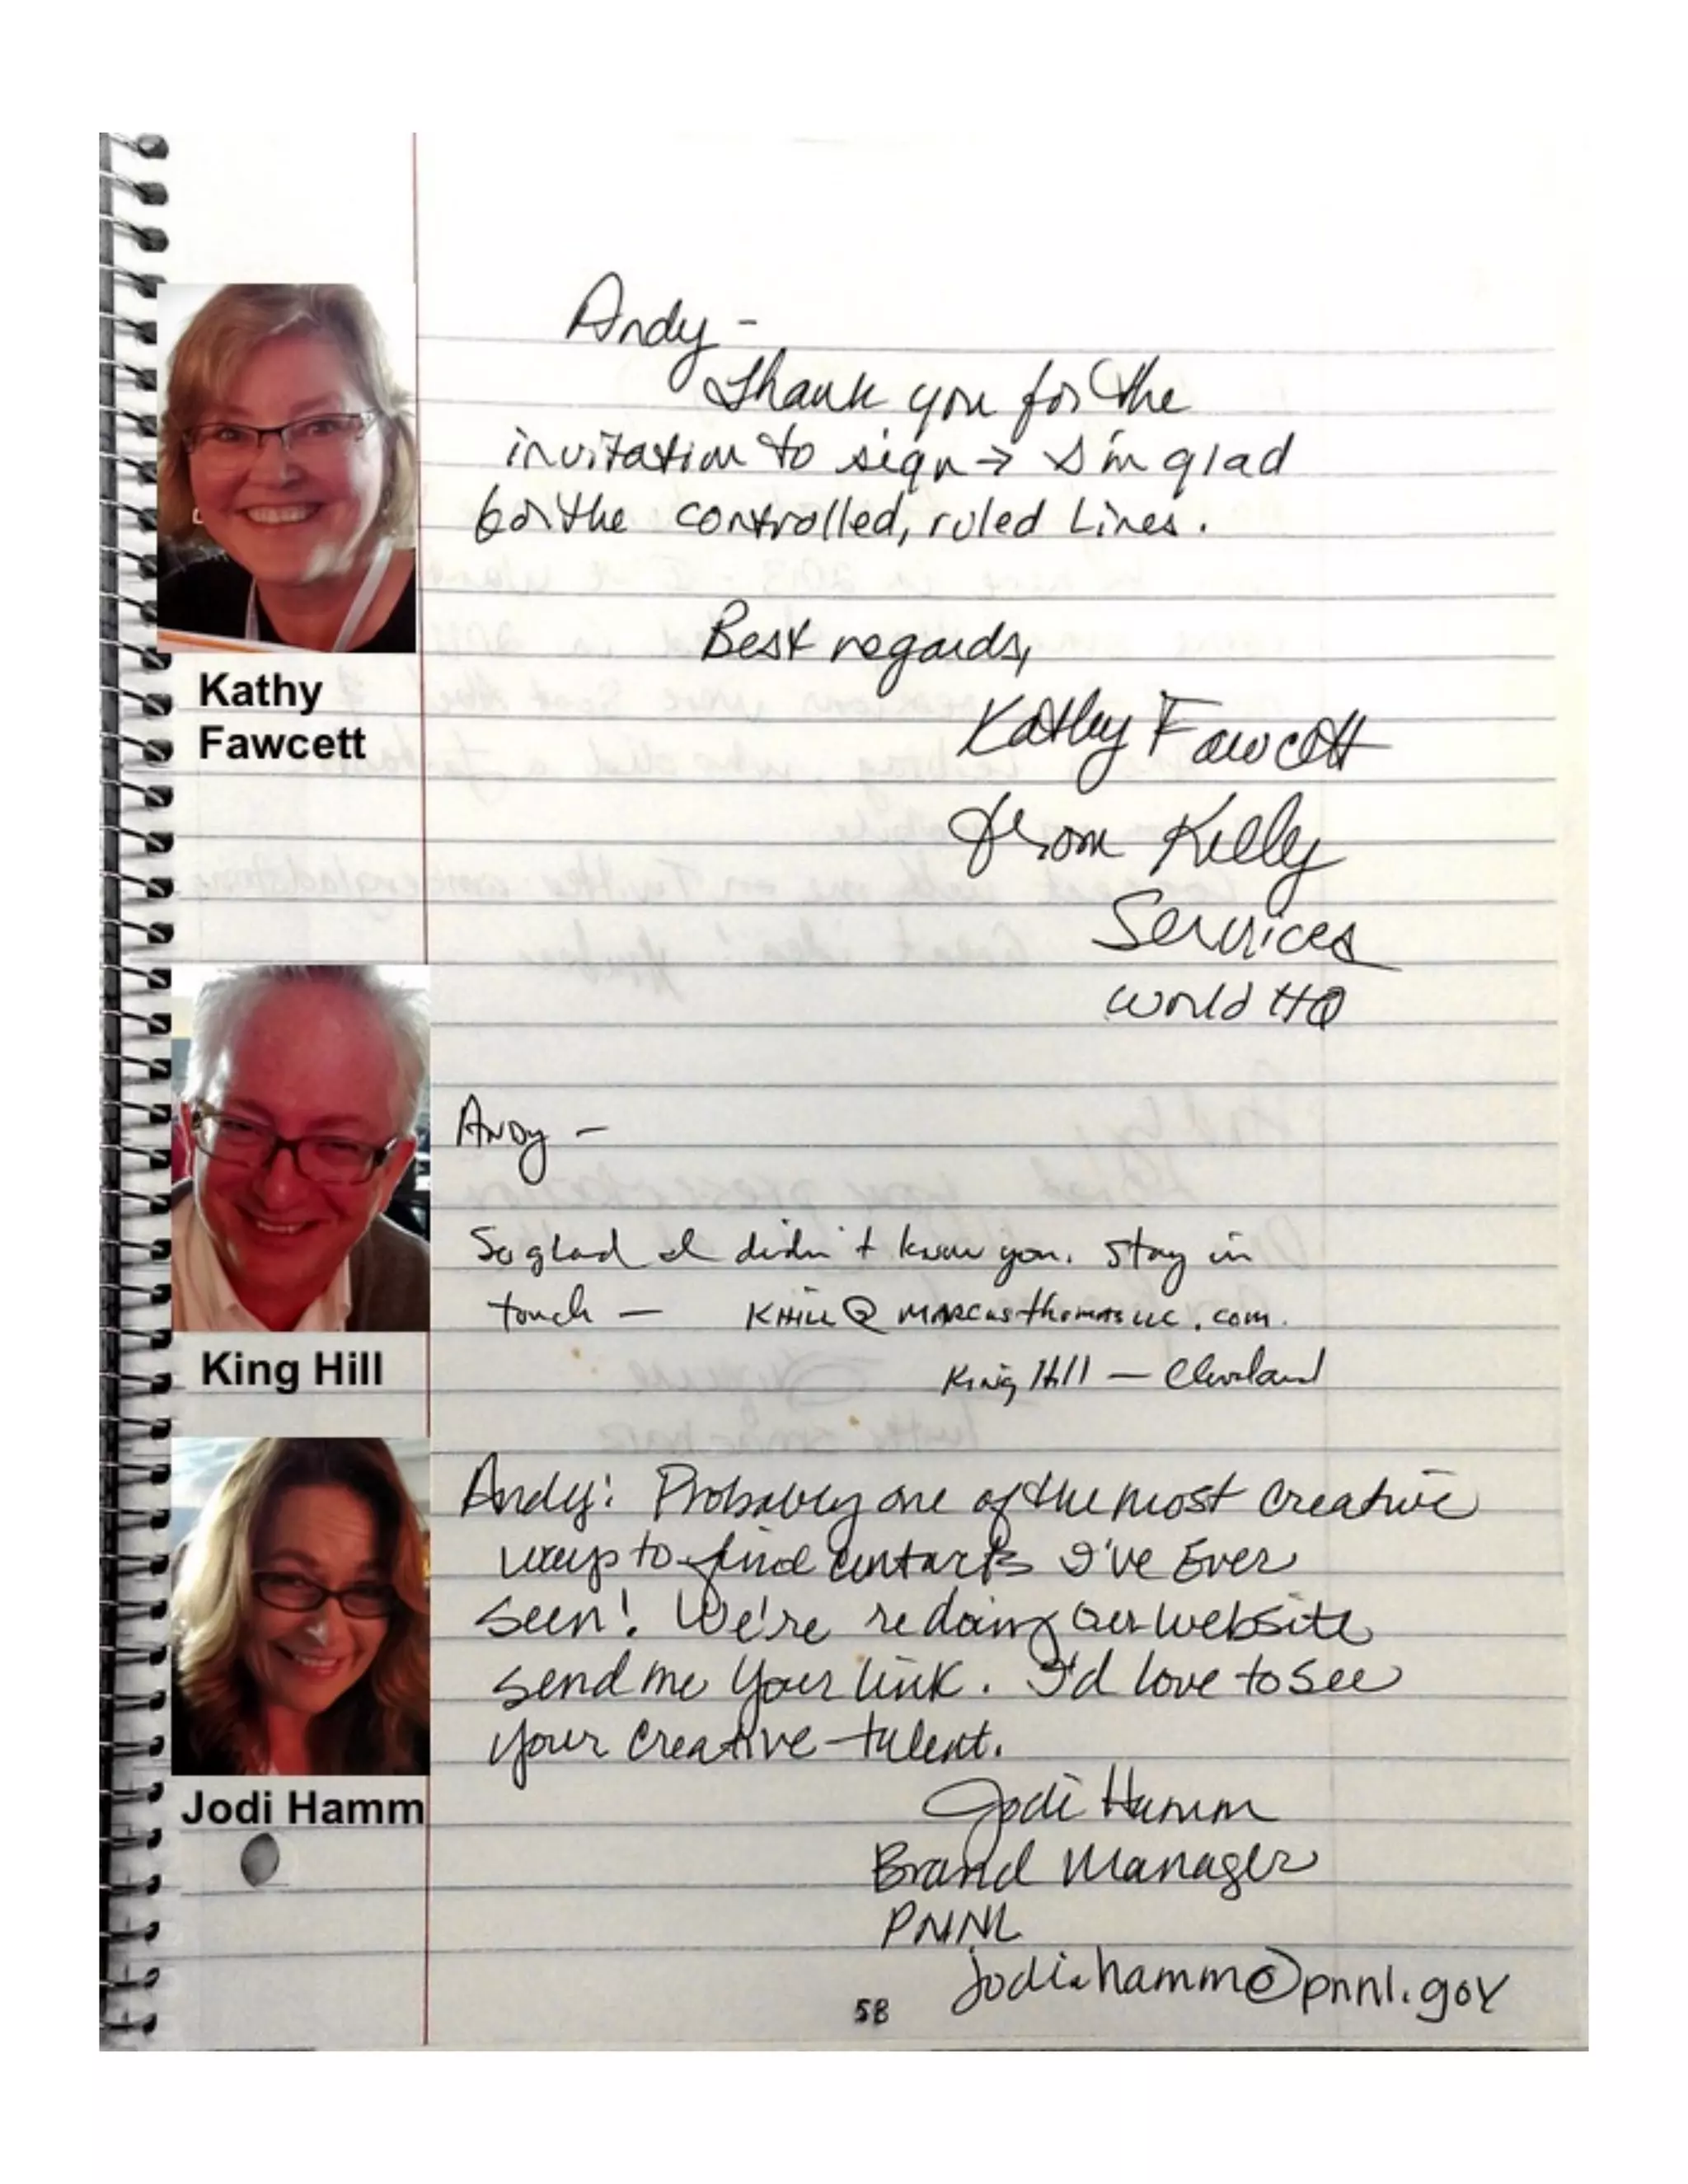 Andy -
Thank you for the
invitation to sign → I'm glad
for the controlled, ruled Lines.
Best regards,
Kathy Fawcett
from Kelly
Services
World HQ
Kathy
Fawcett
Andy —
So glad I didn't know you. Stay in
touch — KHill@marcusthomasllc.com.
King Hill — Cleveland
King Hill
Andy: Probably one of the most creative
ways to find contacts I've Ever
seen! We're redoing our website
send me your link. I'd love to see
your creative talent.
Jodi Hamm
Brand Manager
PNNL
jodi.hamm@pnnl.gov
Jodi Hamm
58